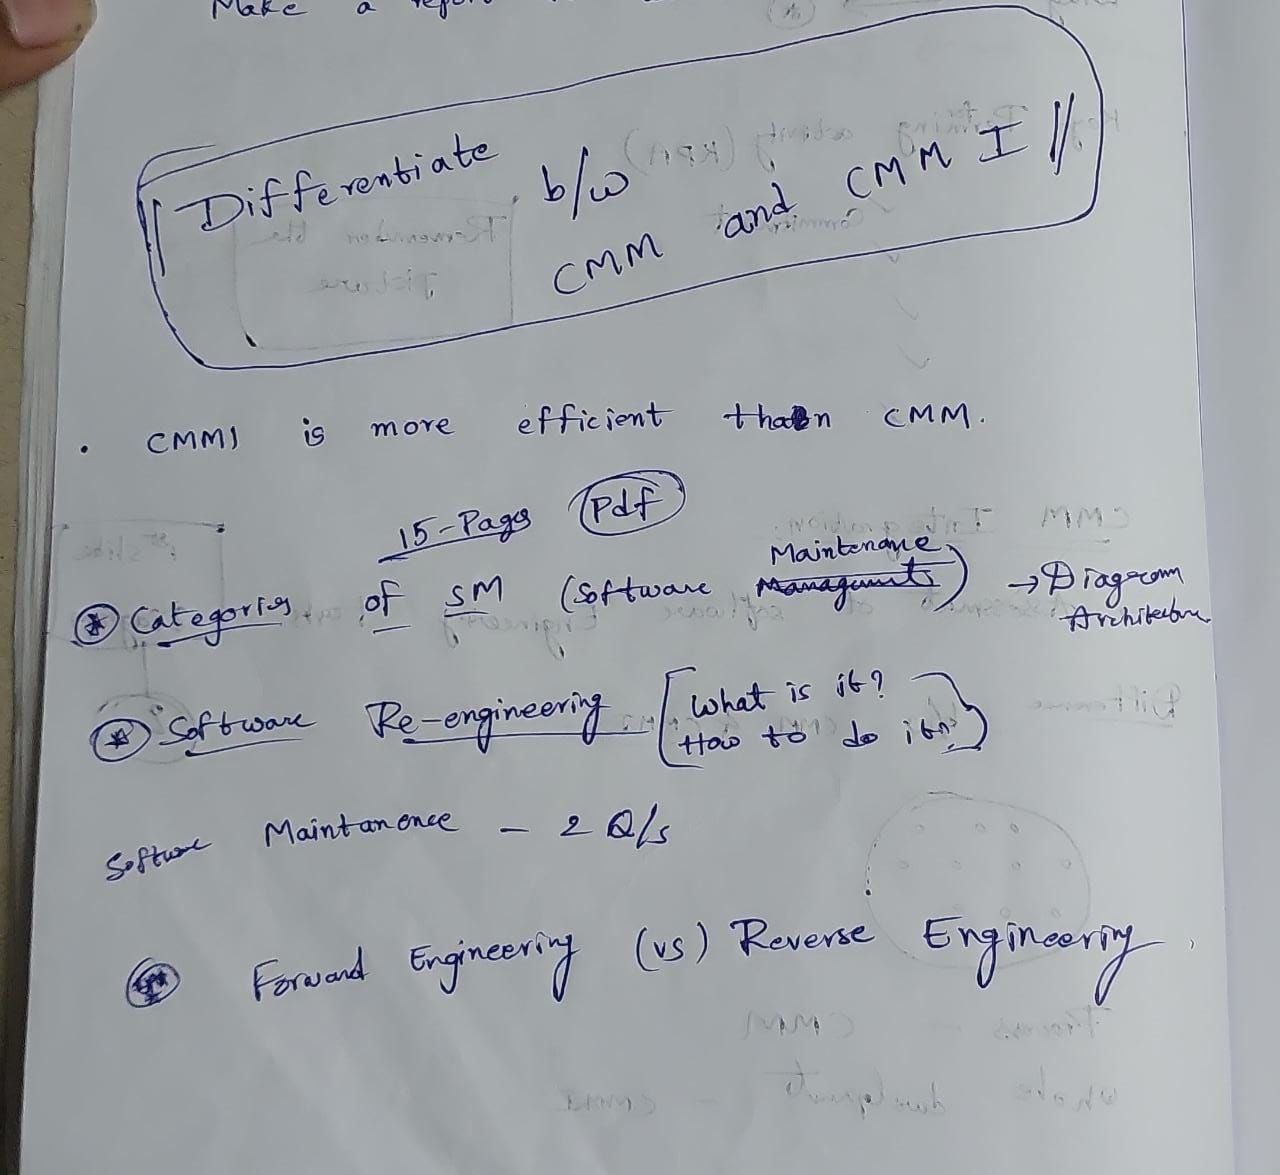 Make a report
Differentiate b/w
CMM and CMM I //
. CMMI is more efficient than CMM.
15-Pages Pdf
Maintenance
* Categories of SM (Software Managments) → Diagram
Architecture
* Software Re-engineering [What is it?
How to do it?]
Software Maintanence - 2 Q/s
Forward Engineering (vs) Reverse Engineering.